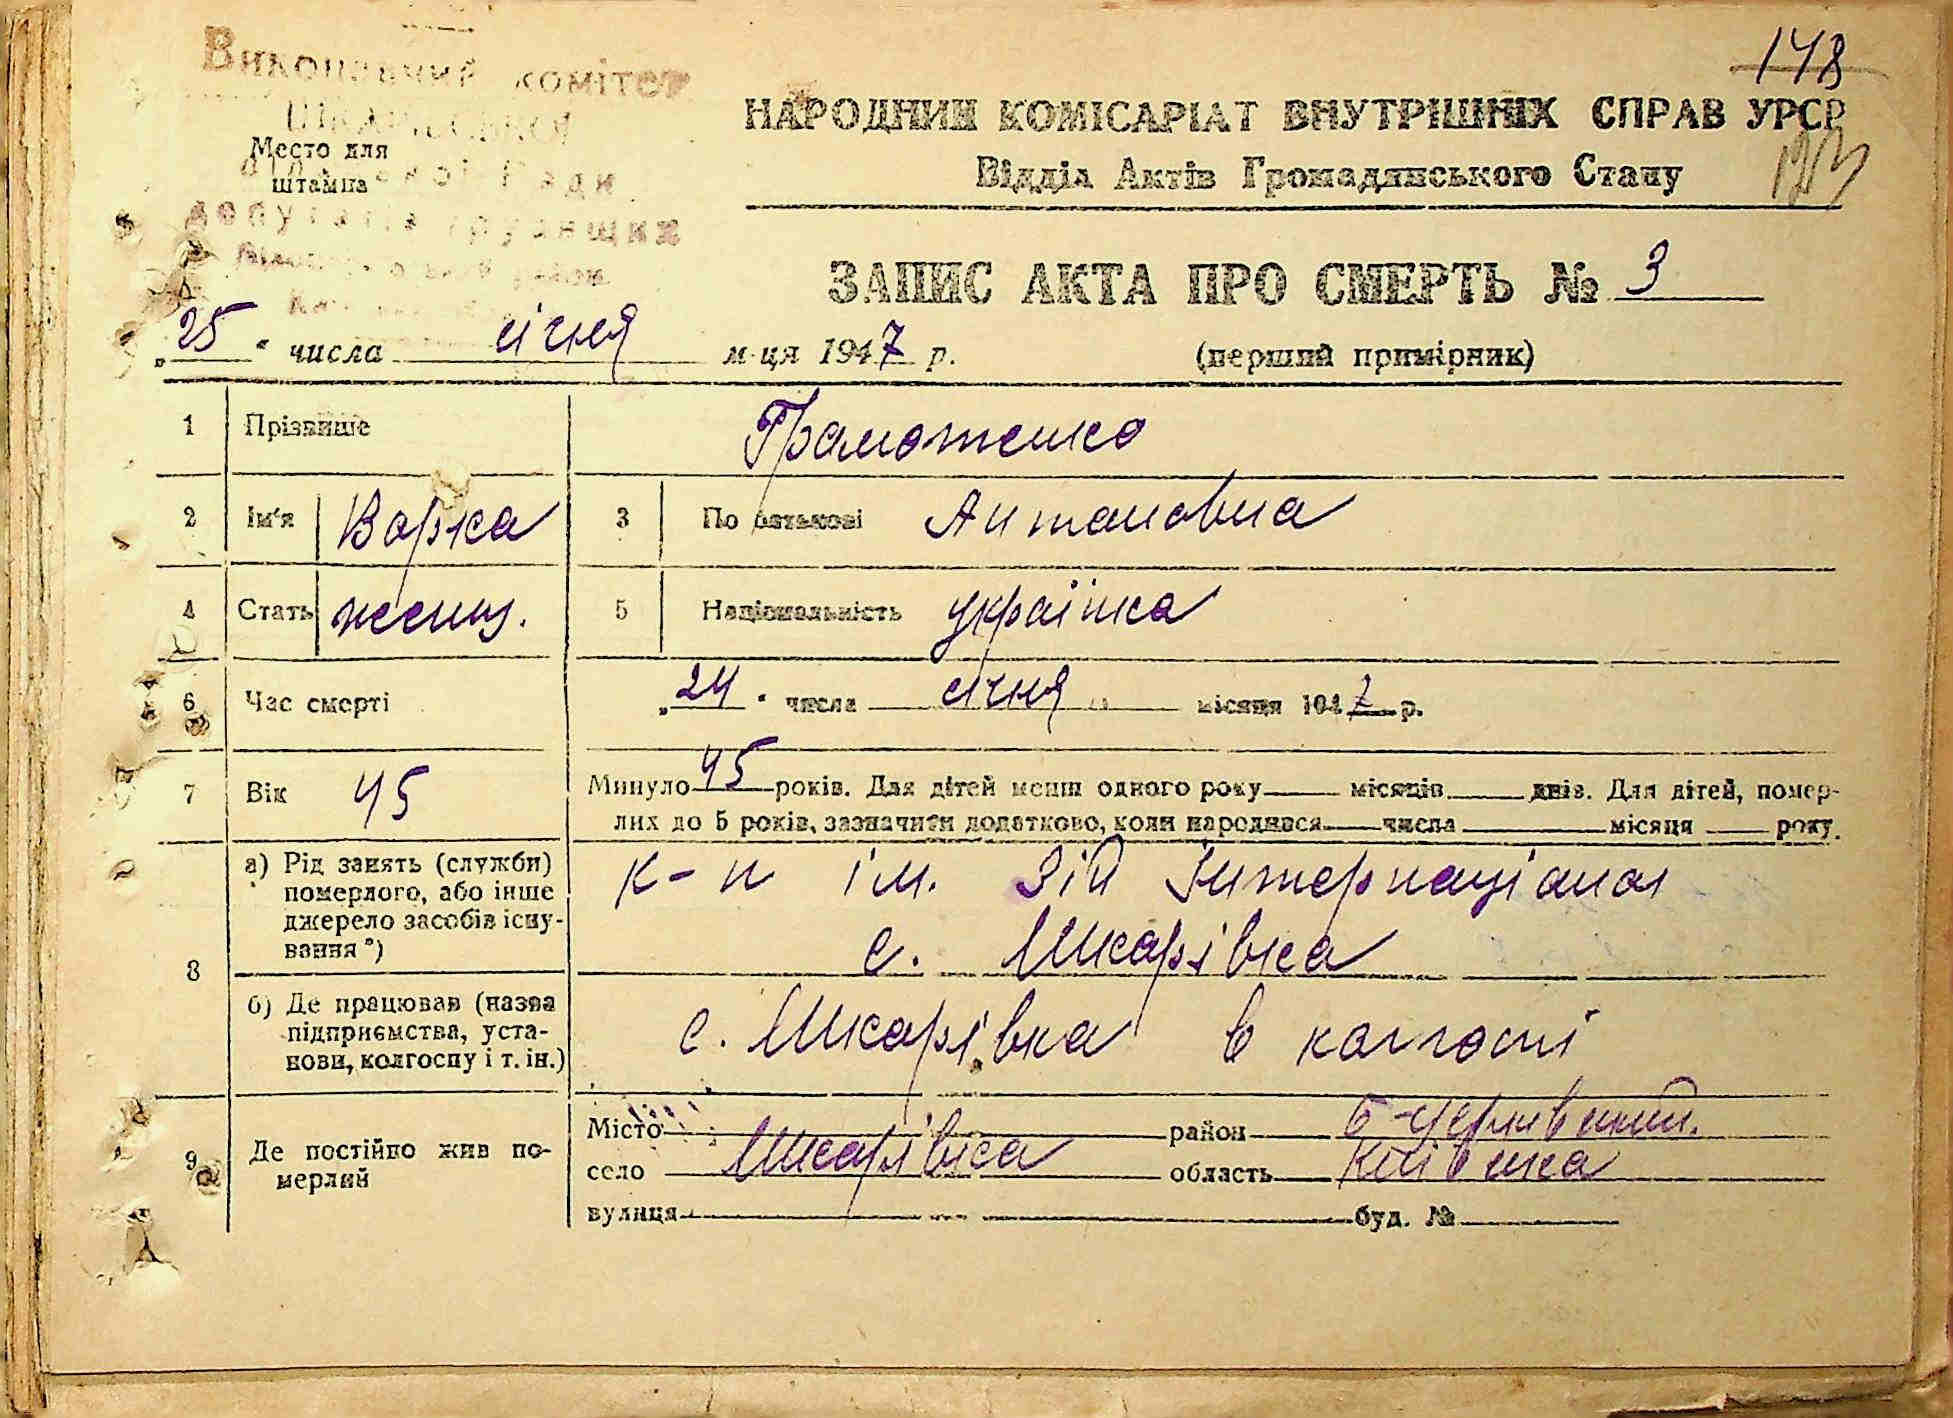 148
Виконавчий комітет
Шкарівської
сільської Ради
депутатів трудящих
Место для
штампа
НАРОДНИЙ КОМІСАРІАТ ВНУТРІШНІХ СПРАВ УРСР
Відділ Актів Громадянського Стану
ЗАПИС АКТА ПРО СМЕРТЬ № 3
„25“ числа січня м-ця 1947 р. (перший примірник)
1 Прізвище Грамотенко
2 Ім'я Варка 3 По батькові Антановна
4 Стать женщ. 5 Національність українка
6 Час смерті „24“ числа січня місяця 1947 р.
7 Вік 45 Минуло 45 років. Для дітей менш одного року місяців днів. Для дітей, помер-
лих до 5 років, зазначити додатково, коли народився числа місяця року.
8 а) Рід занять (служби)
померлого, або інше
джерело засобів існу-
вання*)
к-п ім. 3ій Інтернаціонал
с. Шкарівка
б) Де працював (назва
підприємства, уста-
нови, колгоспу і т. ін.)
с. Шкарівка в колгоспі
9 Де постійно жив по-
мерлий
Місто район Б-Церківський.
село Шкарівка область Київська
вулиця буд. №